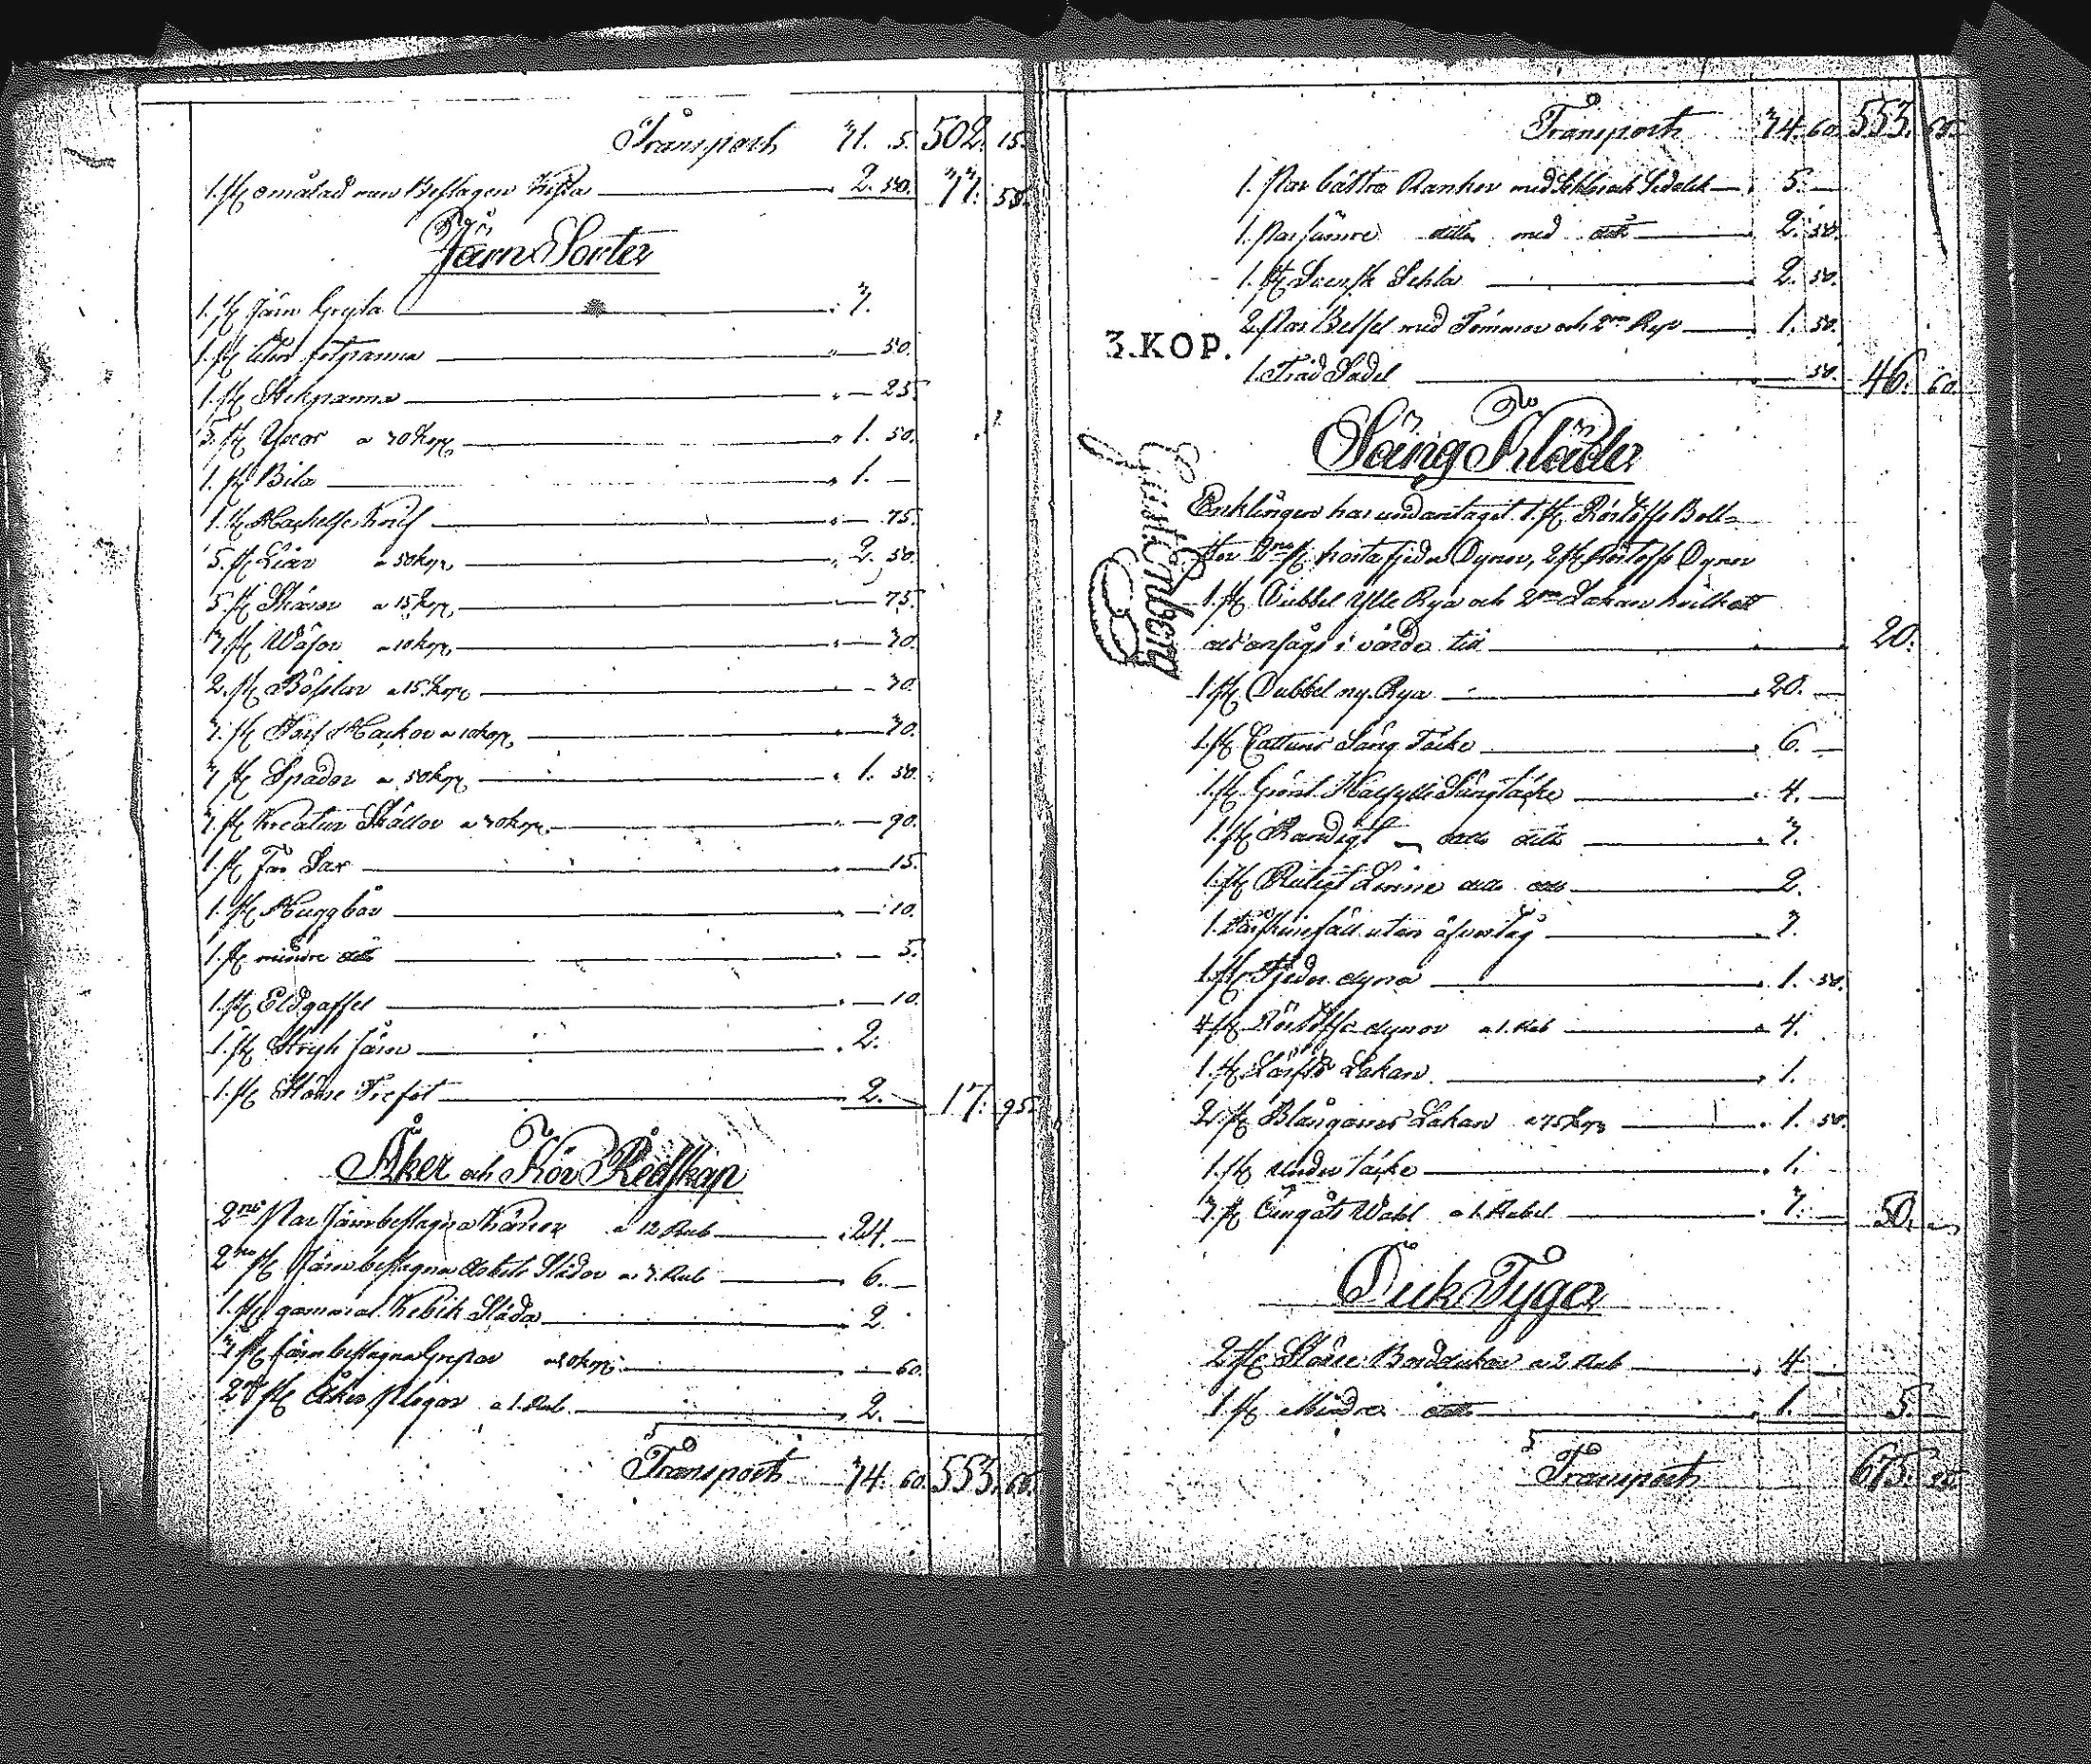 Transport 31. 5. 502. 15.
1. st omålad men Beslagen Kista 2. 50. 33. 55.
Järn Sorter
1. st Järn Gryta 3.
1. st liten fotpanna 50.
1. st Stekpanna 25.
5. st Yxor a 30 kop 1. 50.
1. st Bila 1. —
1. st Hackelse Knif 75.
5. st Liar a 50 kop 2. 50.
5. st Skäror a 15 kop 75.
3. st a 10 kop 30.
2. st a 15 kop 30.
3. st Torf Hackor a 10 kop 30.
3 st Spador a 50 kop 1. 50.
3. st Kreatur Skällor a 30 kop 90.
1. st Får Sax 15.
1. st 10.
1. st mindre ditto 5.
1. st Eldgaffel 10.
1. st Stryk Järn 2.
1. st Större Trefot 2. 17. 95.
Åker och Kör Redskap
2ne Par Järnbeslagna Kärror a 12 Rub 24. —
2ne st Järnbeslagna Slädor a 3. Rub 6. —
1. st gammal Släda 2.
3 st Järnbeslagna Grepar 60.
2ne st Åker Plogar a 1. Rub. 2. —
Transport 34. 60. 553. 65.
Transport 34. 60. 553. 65.
1. Par bättre Rankor med 5. —
1. Par sämre ditto med ditto 2. 50.
1. st Svensk Sehla 2. 50.
2. Par Betsel med Tömmar och 2ne Rep 1. 50.
3. KOP.
1. Träd Sadel 50. 46. 60.
Säng Kläder
Enklingen har undantagit 1. st Bols=
ter 2ne st Dynor, 2 st Dynor
1. st Dubbel Ylle Rya och 2ne Lakan hvilket
i värde till 20.
1 st Dubbel ny Rya 20. —
1. st Cattuns Säng Täcke 6. —
1. st Grönt Halfylle Sängtäcke 4. —
1. st Randigt ditto ditto 3.
1. st Rutigt Linne ditto ditto 2.
1. Fårskinsfäll utan öfvertåg 3.
1. st Fjeder dyna 1. 50.
4 st dynor a 1. Rub 4.
1. st Lärfts Lakan 1.
2. st Blångarns Lakan a 75 kop 1. 50.
1. st Under täcke 1.
3. st Wahl a 1. Rubel 3. — 50. —
Duk Tyger
2 st Större Borddukar a 2 Rub 4 —
1 st Mindre ditto 1. — 5. —
Transport 675.